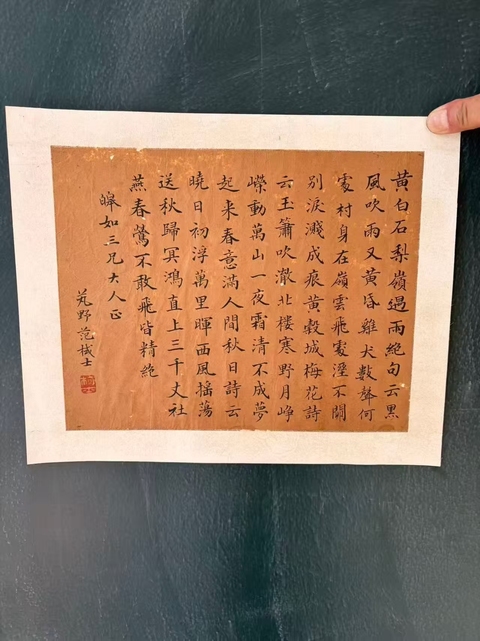 黄白石梨嶺遇雨絶句云黒
風吹雨又黄昏雞犬數聲何
處村身在嶺雲飛處溼不關
別淚濺成痕黄穀城梅花詩
云玉簫吹澈北楼寒野月崢
嶸動萬山一夜霜清不成夢
起来春意滿人間秋日詩云
曉日初浮萬里暉西風揺蕩
送秋歸冥鴻直上三千丈社
燕春鶯不敢飛皆精絶
皞如三兄大人正
芄野范棫士